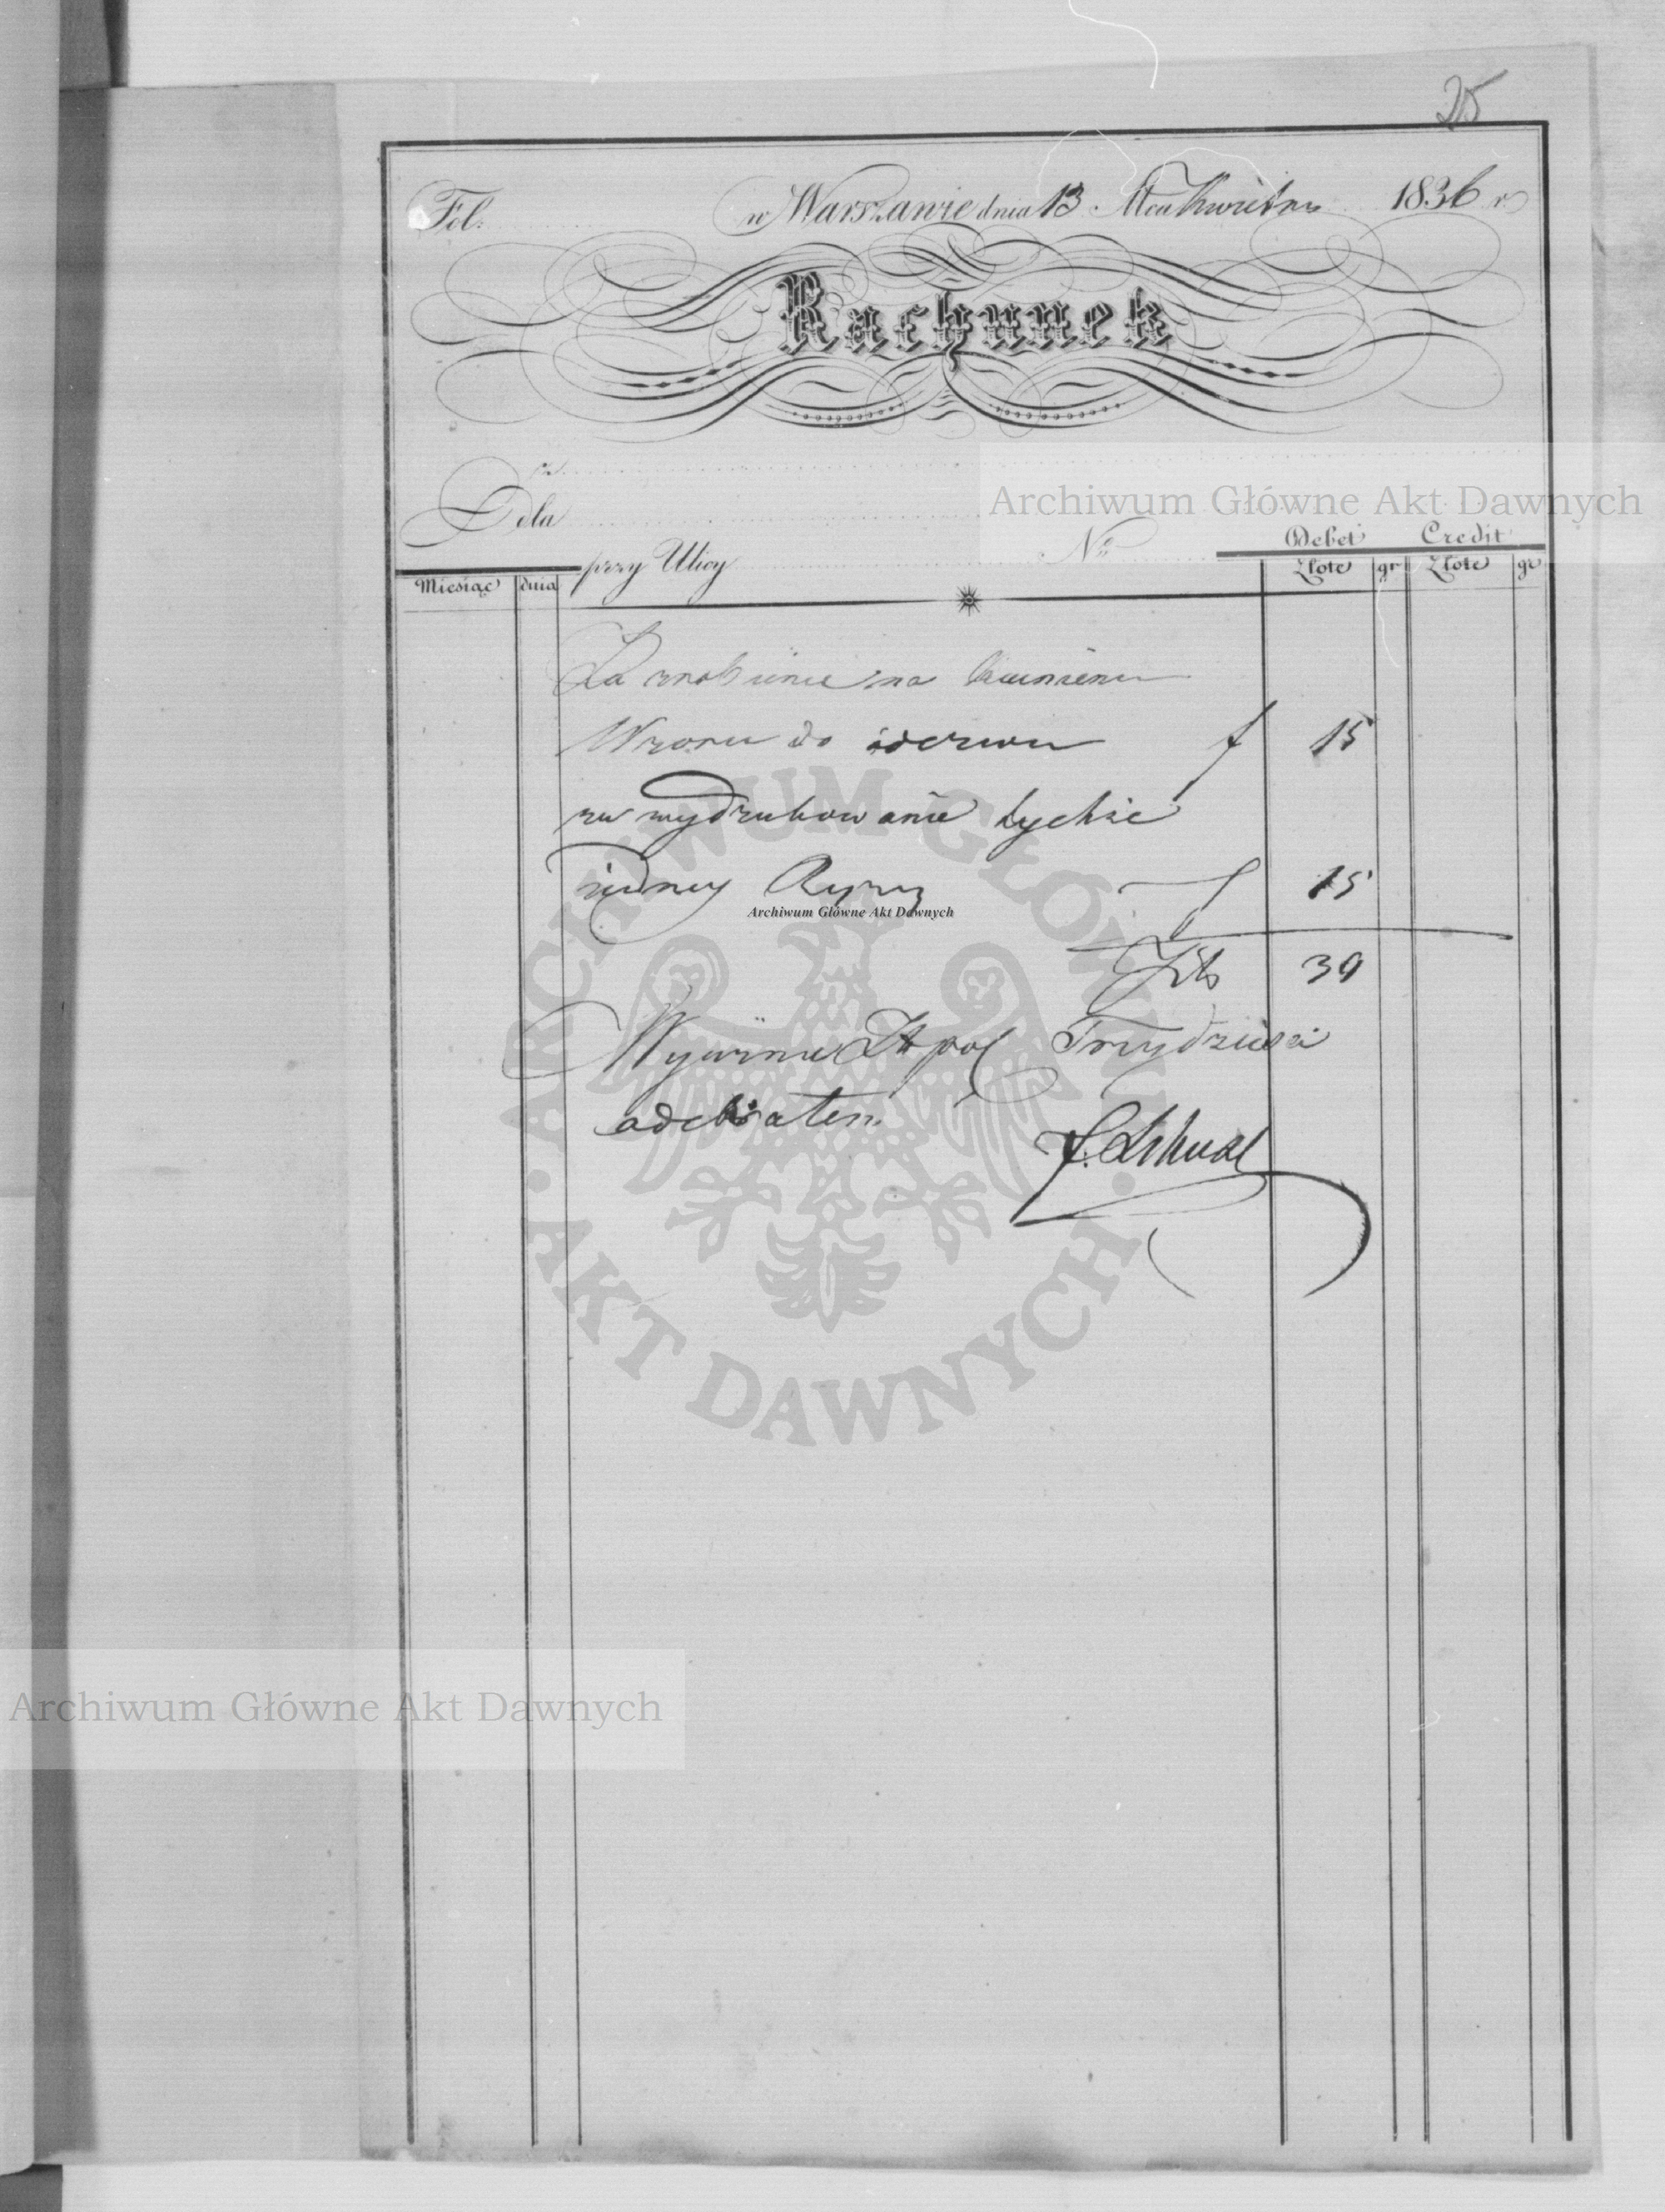 25
Fol. w Warszawie dnia 13 Mca Kwietnia 1836 r.
Rachunek
Archiwum Główne Akt Dawnych
Dla
przy Ulicy No
Debet Credit
Miesiąc dnia Złote gr Złote gr
Za zrobienie na kamieniu
Wzoru do f 15
za wydrukowanie tychże
jedney Ryzy f 15
Archiwum Główne Akt Dawnych
Złt 30
Wyzurnie Zł pol Trzydzieści
odebrałem
ARCHIWUM GŁÓWNE
AKT DAWNYCH
Archiwum Główne Akt Dawnych